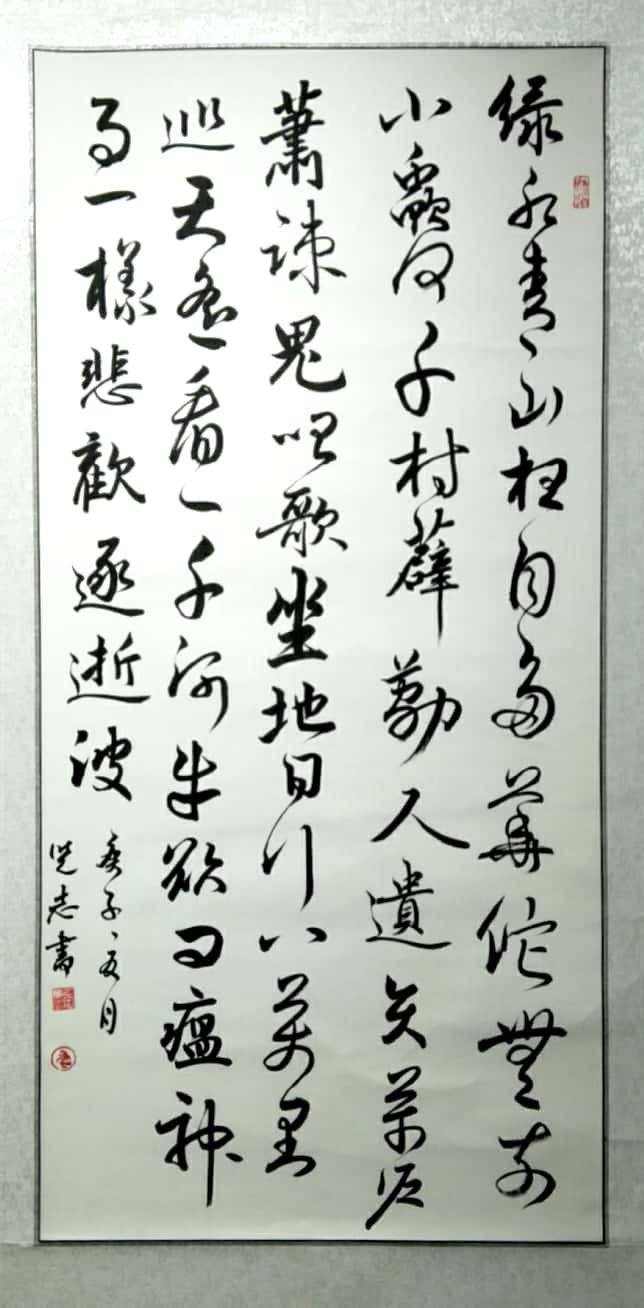 緑水青山枉自多華佗無奈
小蟲何千村薜荔人遺矢萬户
蕭疎鬼唱歌坐地日行八萬里
巡天遙看一千河牛欲问瘟神
事一樣悲歡逐逝波
庚子五月
志書